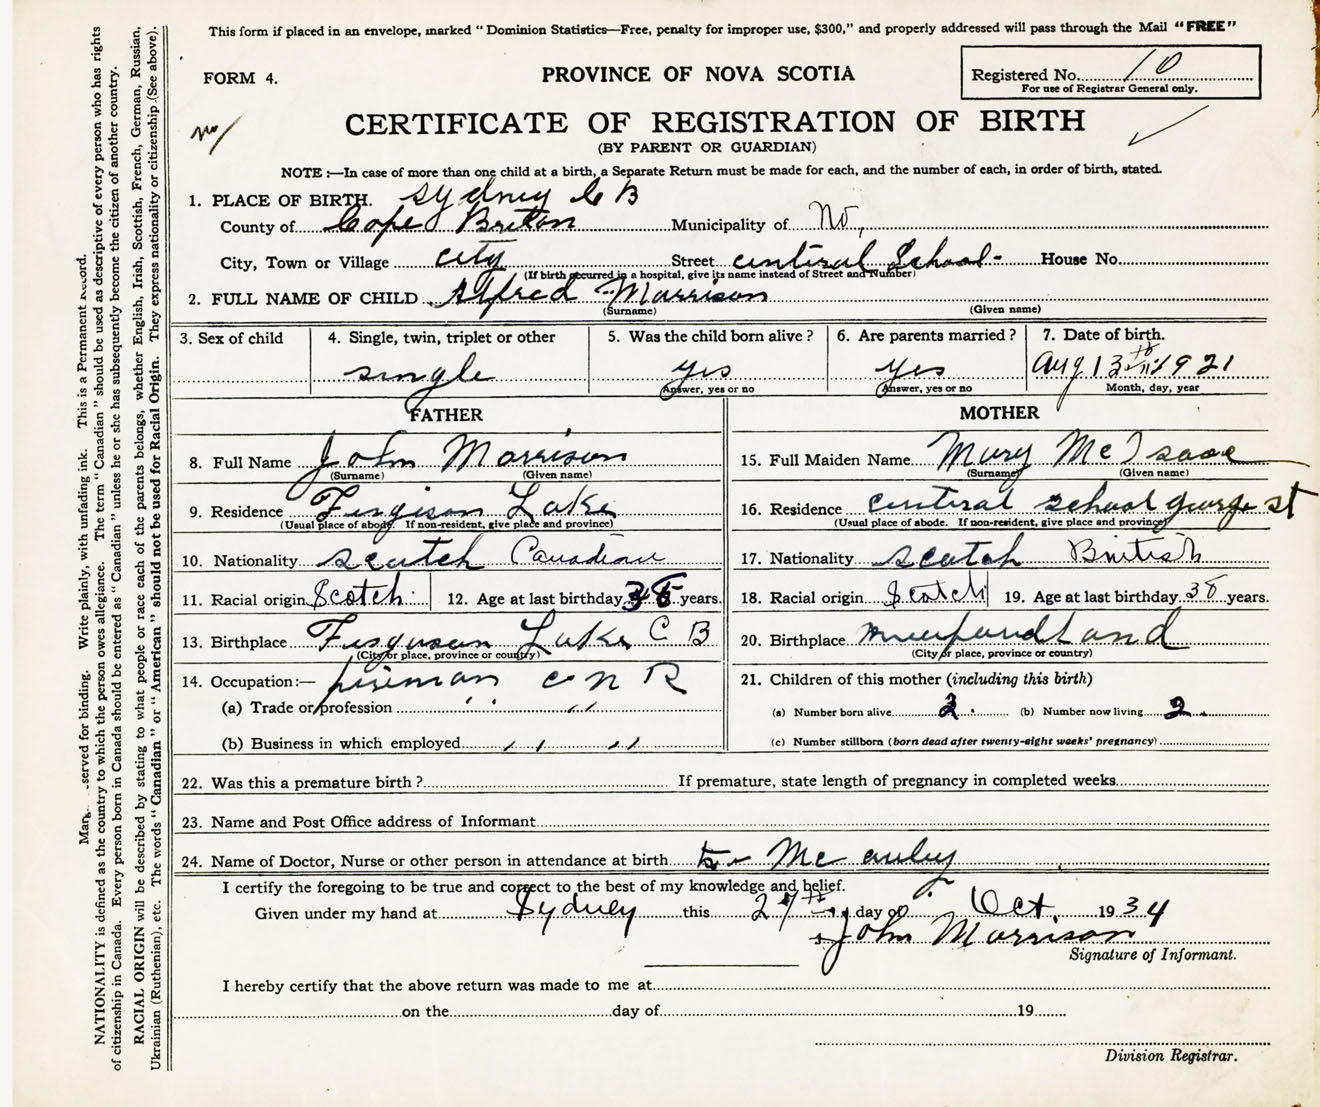 This form if placed in an envelope, marked “Dominion Statistics—Free, penalty for improper use, $300,” and properly addressed will pass through the Mail “FREE”
FORM 4.
PROVINCE OF NOVA SCOTIA
Registered No. 10
For use of Registrar General only.
CERTIFICATE OF REGISTRATION OF BIRTH
(BY PARENT OR GUARDIAN)
NOTE:—In case of more than one child at a birth, a Separate Return must be made for each, and the number of each, in order of birth, stated.
1. PLACE OF BIRTH. Sydney C B
County of Cape Breton Municipality of No,
City, Town or Village city Street centiral School- House No.
(If birth occurred in a hospital, give its name instead of Street and Number)
2. FULL NAME OF CHILD Alfred Morrison
(Surname) (Given name)
3. Sex of child 4. Single, twin, triplet or other 5. Was the child born alive? 6. Are parents married? 7. Date of birth.
single yes yes Aug 13th 1921
Answer, yes or no Answer, yes or no Month, day, year
FATHER MOTHER
8. Full Name John Morrison
(Surname) (Given name)
9. Residence Fergison Lake
(Usual place of abode. If non-resident, give place and province)
10. Nationality scotch Canadian
11. Racial origin Scotch 12. Age at last birthday 38 years.
13. Birthplace Furguson Lake C B
(City or place, province or country)
14. Occupation:— fireman C N R
(a) Trade or profession " "
(b) Business in which employed " "
15. Full Maiden Name Mary McIsaac
(Surname) (Given name)
16. Residence centiral school george st
(Usual place of abode. If non-resident, give place and province)
17. Nationality scotch British
18. Racial origin Scotch 19. Age at last birthday 38 years.
20. Birthplace
(City or place, province or country)
21. Children of this mother (including this birth)
(a) Number born alive 2. (b) Number now living 2.
(c) Number stillborn (born dead after twenty-eight weeks' pregnancy)
22. Was this a premature birth? If premature, state length of pregnancy in completed weeks
23. Name and Post Office address of Informant
24. Name of Doctor, Nurse or other person in attendance at birth Mc auley
I certify the foregoing to be true and correct to the best of my knowledge and belief.
Given under my hand at Sydney this 27th day of Oct. 1934
John Morrison
Signature of Informant.
I hereby certify that the above return was made to me at
on the day of 19
Division Registrar.
served for binding. Write plainly, with unfading ink. This is a Permanent Record.
NATIONALITY is defined as the country to which the person owes allegiance. The term “Canadian” should be used as descriptive of every person who has rights
of citizenship in Canada. Every person born in Canada should be entered as “Canadian” unless he or she has subsequently become the citizen of another country.
RACIAL ORIGIN will be described by stating to what people or race each of the parents belongs, whether English, Irish, Scottish, French, German, Russian,
Ukrainian (Ruthenian), etc. The words “Canadian” or “American” should not be used for Racial Origin. They express nationality or citizenship (See above).